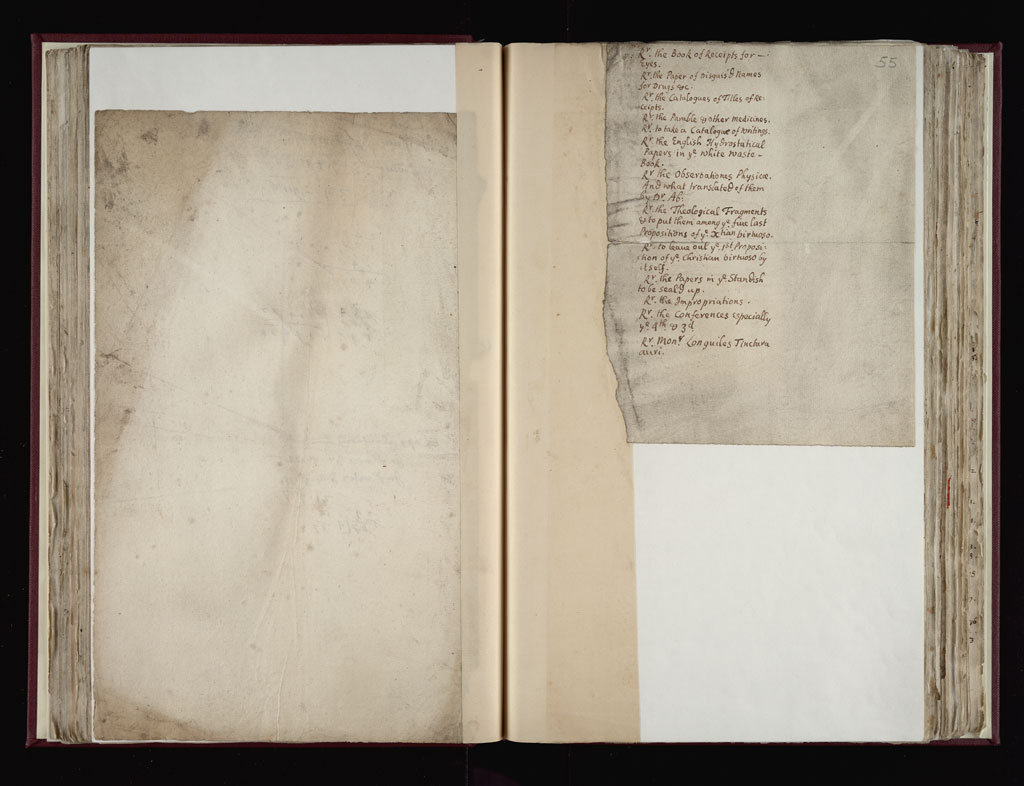 55
Rr. the Book of Receipts for —
Eyes.
Rr. the Paper of Disguis'd Names
for Drugs &c.
Rr. the Catalogues of Titles of Re-
ceipts.
Rr. the Pamble & other Medicines.
Rr. to take a Catalogue of Writings.
Rr. the English Hydrostatical
Papers in ye white Waste-
Book.
Rr the Observationes Physicæ.
And what translated of them
by Dr. Ab:
Rr. the Theological Fragments
& to put them among ye five last
Propositions of ye Xtian Virtuoso.
Rr. to leave out ye 1st Proposi-
tion of ye Christian Virtuoso by
itself.
Rr. the Papers in ye Standish
to be seal'd up.
Rr. the Impropriations.
Rr. the Conferences especially
ye 4th & 3d
Rr. Monr Longuiles Tinctura
auri.